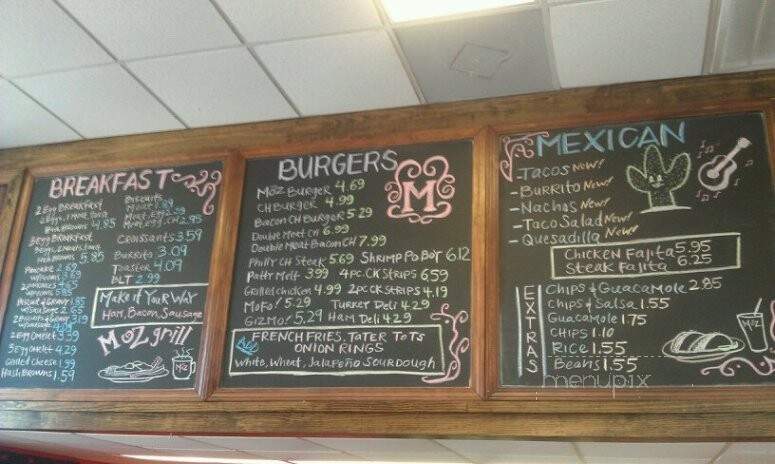 BREAKFAST
2 Egg Breakfast
Hash Browns 4.85
3 Egg Breakfast
Hash Browns 5.85
Pancake 2.69
Biscuit & Gravy 1.85
w/Sausage 2.65
2 Egg Omelet 3.39
3 Egg Omelet 4.29
Grilled Cheese 1.99
Hash Browns 1.59
Biscuits
Meat, Egg
Croissants 3.59
Burrito 3.09
Toaster 4.09
BLT 2.99
Make it Your Way
Ham, Bacon, Sausage
MOZ grill
MOZ
BURGERS
M
Moz Burger 4.69
CH Burger 4.99
Bacon CH Burger 5.29
Double Meat 6.99
Double Meat Bacon CH 7.99
Philly CH Steak 5.69 Shrimp Po Boy 6.12
Patty Melt 3.99 4pc. CK Strips 6.59
Grilled Chicken 4.99 2pc CK Strips 4.19
MOFO! 5.29 Turkey Deli 4.29
GIZMO! 5.29 Ham Deli 4.29
FRENCH FRIES, TATER TOTS
ONION RINGS
White, Wheat, Jalapeño Sourdough
MEXICAN
-Tacos New!
-Burrito New!
-Nachos New!
-Taco Salad New!
-Quesadilla New!
Chicken Fajita 5.95
Steak Fajita 6.25
EXTRAS
Chips & Guacamole 2.85
Chips & Salsa 1.55
Guacamole 1.75
Chips 1.10
Rice 1.55
Beans 1.55
MOZ
menupix